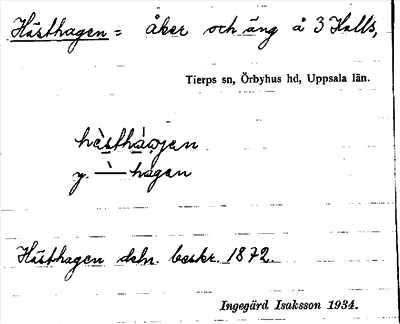 Hästhagen = åker och äng å 3 Halls,
Tierps sn, Örbyhus hd, Uppsala län.
hagen
Hästhagen dcln. beskr. 1872.
Ingegärd Isaksson 1934.